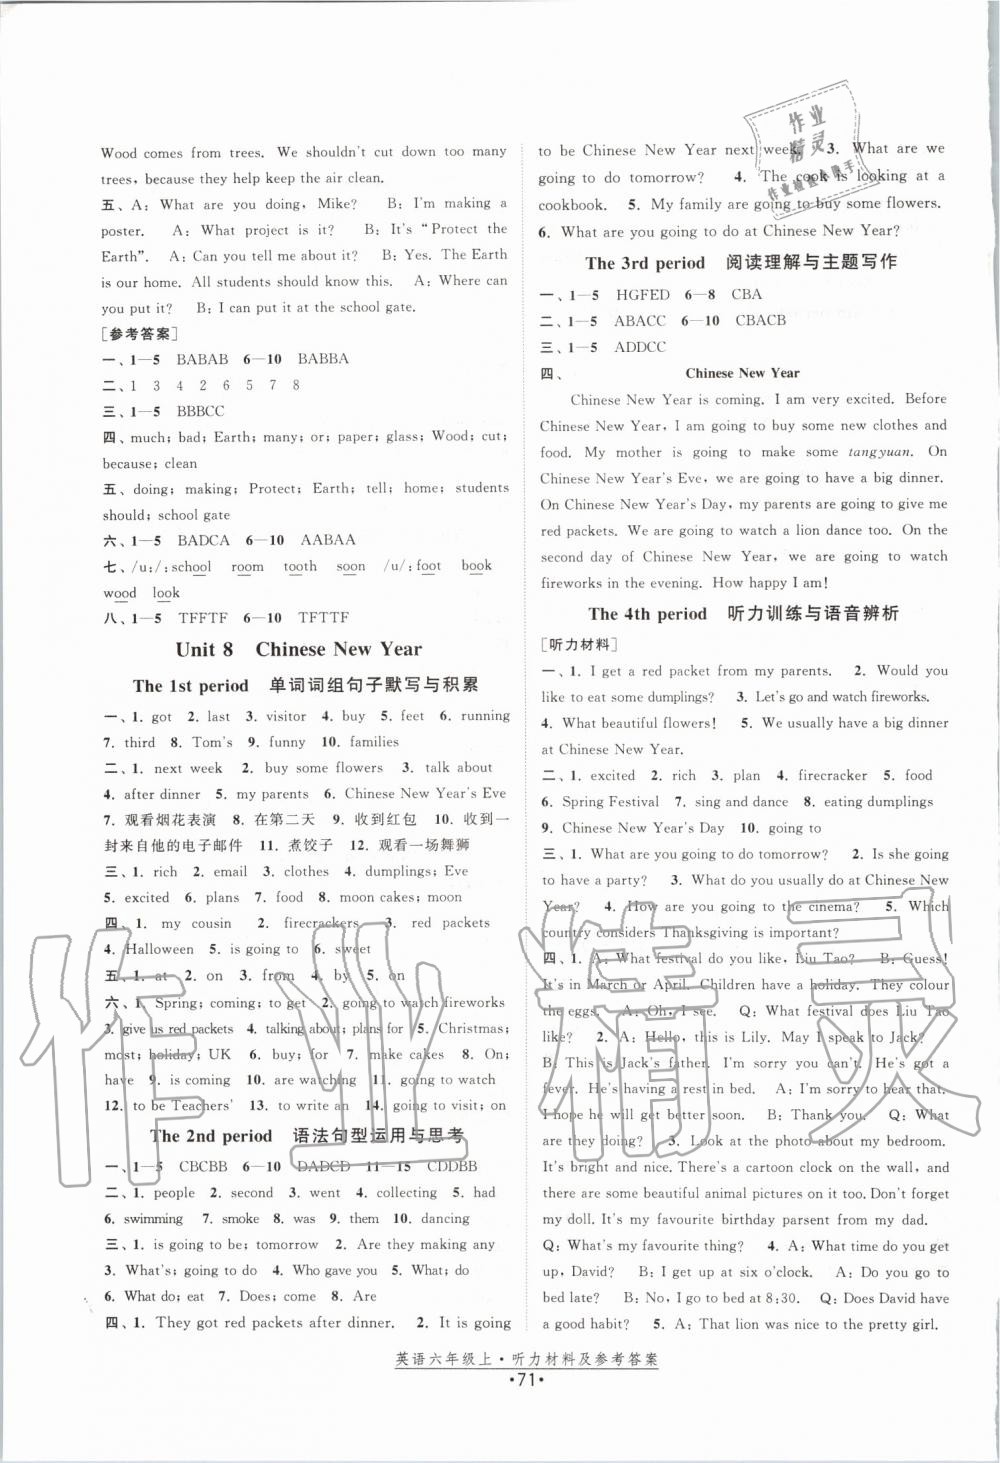 Wood comes from trees. We shouldn't cut down too many
trees, because they help keep the air clean.
五、A: What are you doing, Mike? B: I'm making a
poster. A: What project is it? B: It's "Protect the
Earth". A: Can you tell me about it? B: Yes. The Earth
is our home. All students should know this. A: Where can
you put it? B: I can put it at the school gate.
[参考答案]
一、1—5 BABAB 6—10 BABBA
二、1 3 4 2 6 5 7 8
三、1—5 BBBCC
四、much; bad; Earth; many; or; paper; glass; Wood; cut;
because; clean
五、doing; making; Protect; Earth; tell; home; students
should; school gate
六、1—5 BADCA 6—10 AABAA
七、/uː/: school room tooth soon /u/: foot book
wood look
八、1—5 TFFTF 6—10 TFTTF
Unit 8 Chinese New Year
The 1st period 单词词组句子默写与积累
一、1. got 2. last 3. visitor 4. buy 5. feet 6. running
7. third 8. Tom's 9. funny 10. families
二、1. next week 2. buy some flowers 3. talk about
4. after dinner 5. my parents 6. Chinese New Year's Eve
7. 观看烟花表演 8. 在第二天 9. 收到红包 10. 收到一
封来自他的电子邮件 11. 煮饺子 12. 观看一场舞狮
三、1. rich 2. email 3. clothes 4. dumplings; Eve
5. excited 6. plans 7. food 8. moon cakes; moon
四、1. my cousin 2. firecrackers 3. red packets
4. Halloween 5. is going to 6. sweet
五、1. at 2. on 3. from 4. by 5. on
六、1. Spring; coming; to get 2. going to watch fireworks
3. give us red packets 4. talking about; plans for 5. Christmas;
most; holiday; UK 6. buy; for 7. make cakes 8. On;
have 9. is coming 10. are watching 11. going to watch
12. to be Teachers' 13. to write an 14. going to visit; on
The 2nd period 语法句型运用与思考
一、1—5 CBCBB 6—10 DADCD 11—15 CDDBB
二、1. people 2. second 3. went 4. collecting 5. had
6. swimming 7. smoke 8. was 9. them 10. dancing
三、1. is going to be; tomorrow 2. Are they making any
3. What's; going to do 4. Who gave you 5. What; do
6. What do; eat 7. Does; come 8. Are
四、1. They got red packets after dinner. 2. It is going
to be Chinese New Year next week. 3. What are we
going to do tomorrow? 4. The cook is looking at a
cookbook. 5. My family are going to buy some flowers.
6. What are you going to do at Chinese New Year?
The 3rd period 阅读理解与主题写作
一、1—5 HGFED 6—8 CBA
二、1—5 ABACC 6—10 CBACB
三、1—5 ADDCC
四、 Chinese New Year
Chinese New Year is coming. I am very excited. Before
Chinese New Year, I am going to buy some new clothes and
food. My mother is going to make some tangyuan. On
Chinese New Year's Eve, we are going to have a big dinner.
On Chinese New Year's Day, my parents are going to give me
red packets. We are going to watch a lion dance too. On the
second day of Chinese New Year, we are going to watch
fireworks in the evening. How happy I am!
The 4th period 听力训练与语音辨析
[听力材料]
一、1. I get a red packet from my parents. 2. Would you
like to eat some dumplings? 3. Let's go and watch fireworks.
4. What beautiful flowers! 5. We usually have a big dinner
at Chinese New Year.
二、1. excited 2. rich 3. plan 4. firecracker 5. food
6. Spring Festival 7. sing and dance 8. eating dumplings
9. Chinese New Year's Day 10. going to
三、1. What are you going to do tomorrow? 2. Is she going
to have a party? 3. What do you usually do at Chinese New
Year? 4. How are you going to the cinema? 5. Which
country considers Thanksgiving is important?
四、1. A: What festival do you like, Liu Tao? B: Guess!
It's in March or April. Children have a holiday. They colour
the eggs. A: Oh, I see. Q: What festival does Liu Tao
like? 2. A: Hello, this is Lily. May I speak to Jack?
B: This is Jack's father. I'm sorry you can't. He's got a
fever. He's having a rest in bed. A: I'm sorry to hear that.
I hope he can get better soon. B: Thank you. Q: What
are they doing? 3. Look at the photo about my bedroom.
It's bright and nice. There's a cartoon clock on the wall, and
there are some beautiful animal pictures on it too. Don't forget
my doll. It's my favourite birthday parsent from my dad.
Q: What's my favourite thing? 4. A: What time do you get
up, David? B: I get up at six o'clock. A: Do you go to
bed late? B: No, I go to bed at 8:30. Q: Does David have
a good habit? 5. A: That lion was nice to the pretty girl.
英语六年级上·听力材料及参考答案
·71·
作业精灵
作业
精灵